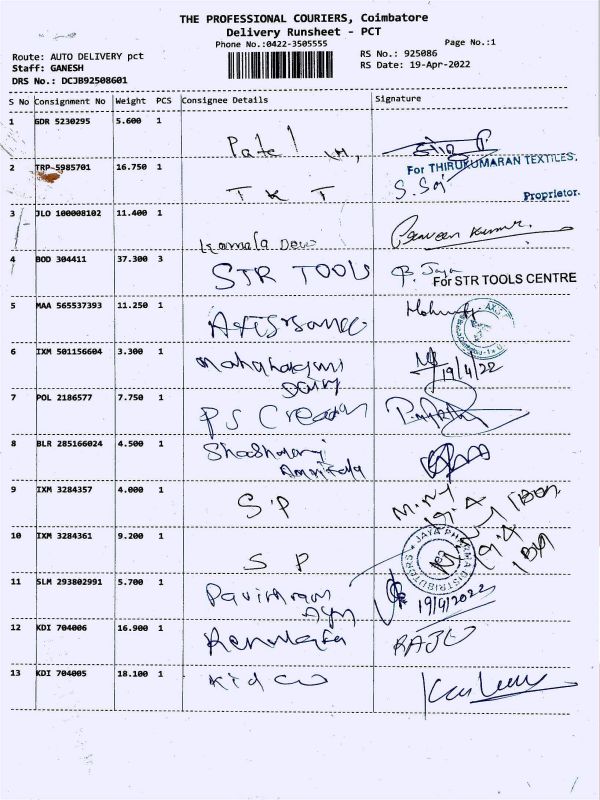 THE PROFESSIONAL COURIERS, Coimbatore
Delivery Runsheet - PCT
Phone No.:0422-3505555
Page No.:1
Route: AUTO DELIVERY pct
Staff: GANESH
DRS No.: DCJB92508601
RS No.: 925086
RS Date: 19-Apr-2022
S No Consignment No Weight PCS Consignee Details Signature
1 GDR 5230295 5.600 1
Patel
2 TRP 5985701 16.750 1 For THIRUKUMARAN TEXTILES.
T K T S. Sai
Proprietor.
3 JLO 100008102 11.400 1
Kamala Devi Praveen Kumar.
4 BOD 304411 37.300 3
STR TOOLS P. Jaya
For STR TOOLS CENTRE
5 MAA 565537393 11.250 1
6 IXM 501156604 3.300 1
Dairy 19/4/22
7 POL 2186577 7.750 1
PS Creation
8 BLR 285166024 4.500 1
9 IXM 3284357 4.000 1
S.P
10 IXM 3284361 9.200 1
S P JAYA PHARMA DISTRIBUTORS
11 SLM 293802991 5.700 1
19/4/2022
12 KDI 704006 16.900 1
RAJU
13 KDI 704005 18.100 1